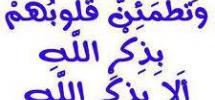 وَتَطْمَئِنُّ قُلُوبُهُمْ
بِذِكْرِ اللَّهِ
أَلَا بِذِكْرِ اللَّهِ